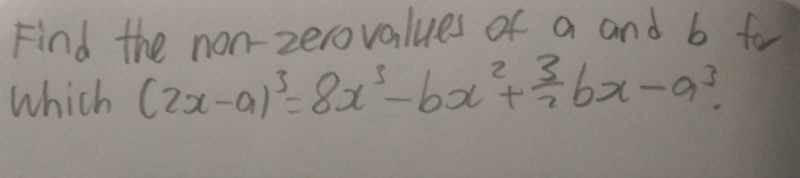 Find the non-zero values of a and b for
which (2x-a)³=8x³-bx²+3/2bx-a³.